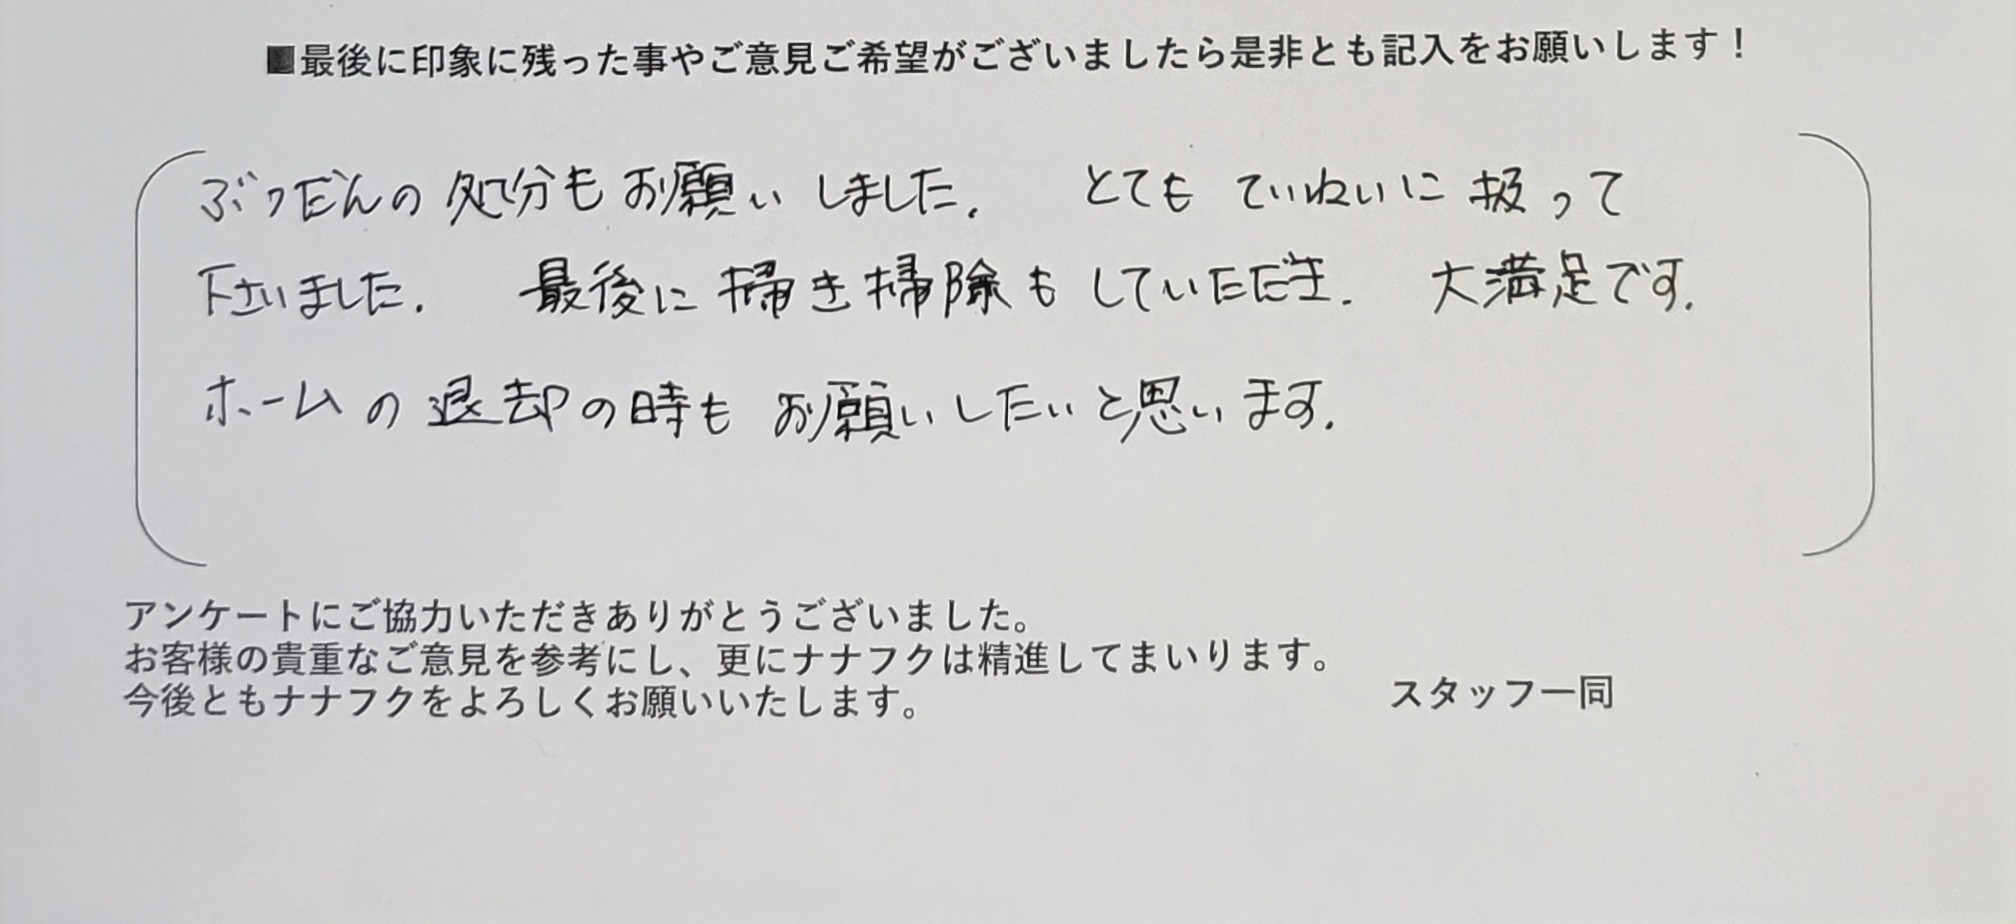 ■最後に印象に残った事やご意見ご希望がございましたら是非とも記入をお願いします！
ぶつだんの処分もお願いしました. とても ていねいに 扱って
下さいました. 最後に掃き掃除も していただき. 大満足です.
ホームの退却の時も お願いしたいと思います.
アンケートにご協力いただきありがとうございました。
お客様の貴重なご意見を参考にし、更にナナフクは精進してまいります。
今後ともナナフクをよろしくお願いいたします。
スタッフ一同